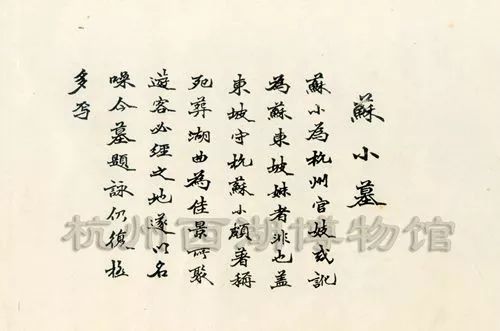 蘇小墓
蘇小為杭州官妓或訛
為蘇東坡妹者非也蓋
東坡守杭蘇小頗著稱
死葬湖曲為佳景所聚
遊客必經之地遂以名
噪今墓題詠仍復極
多焉
杭州西湖博物馆